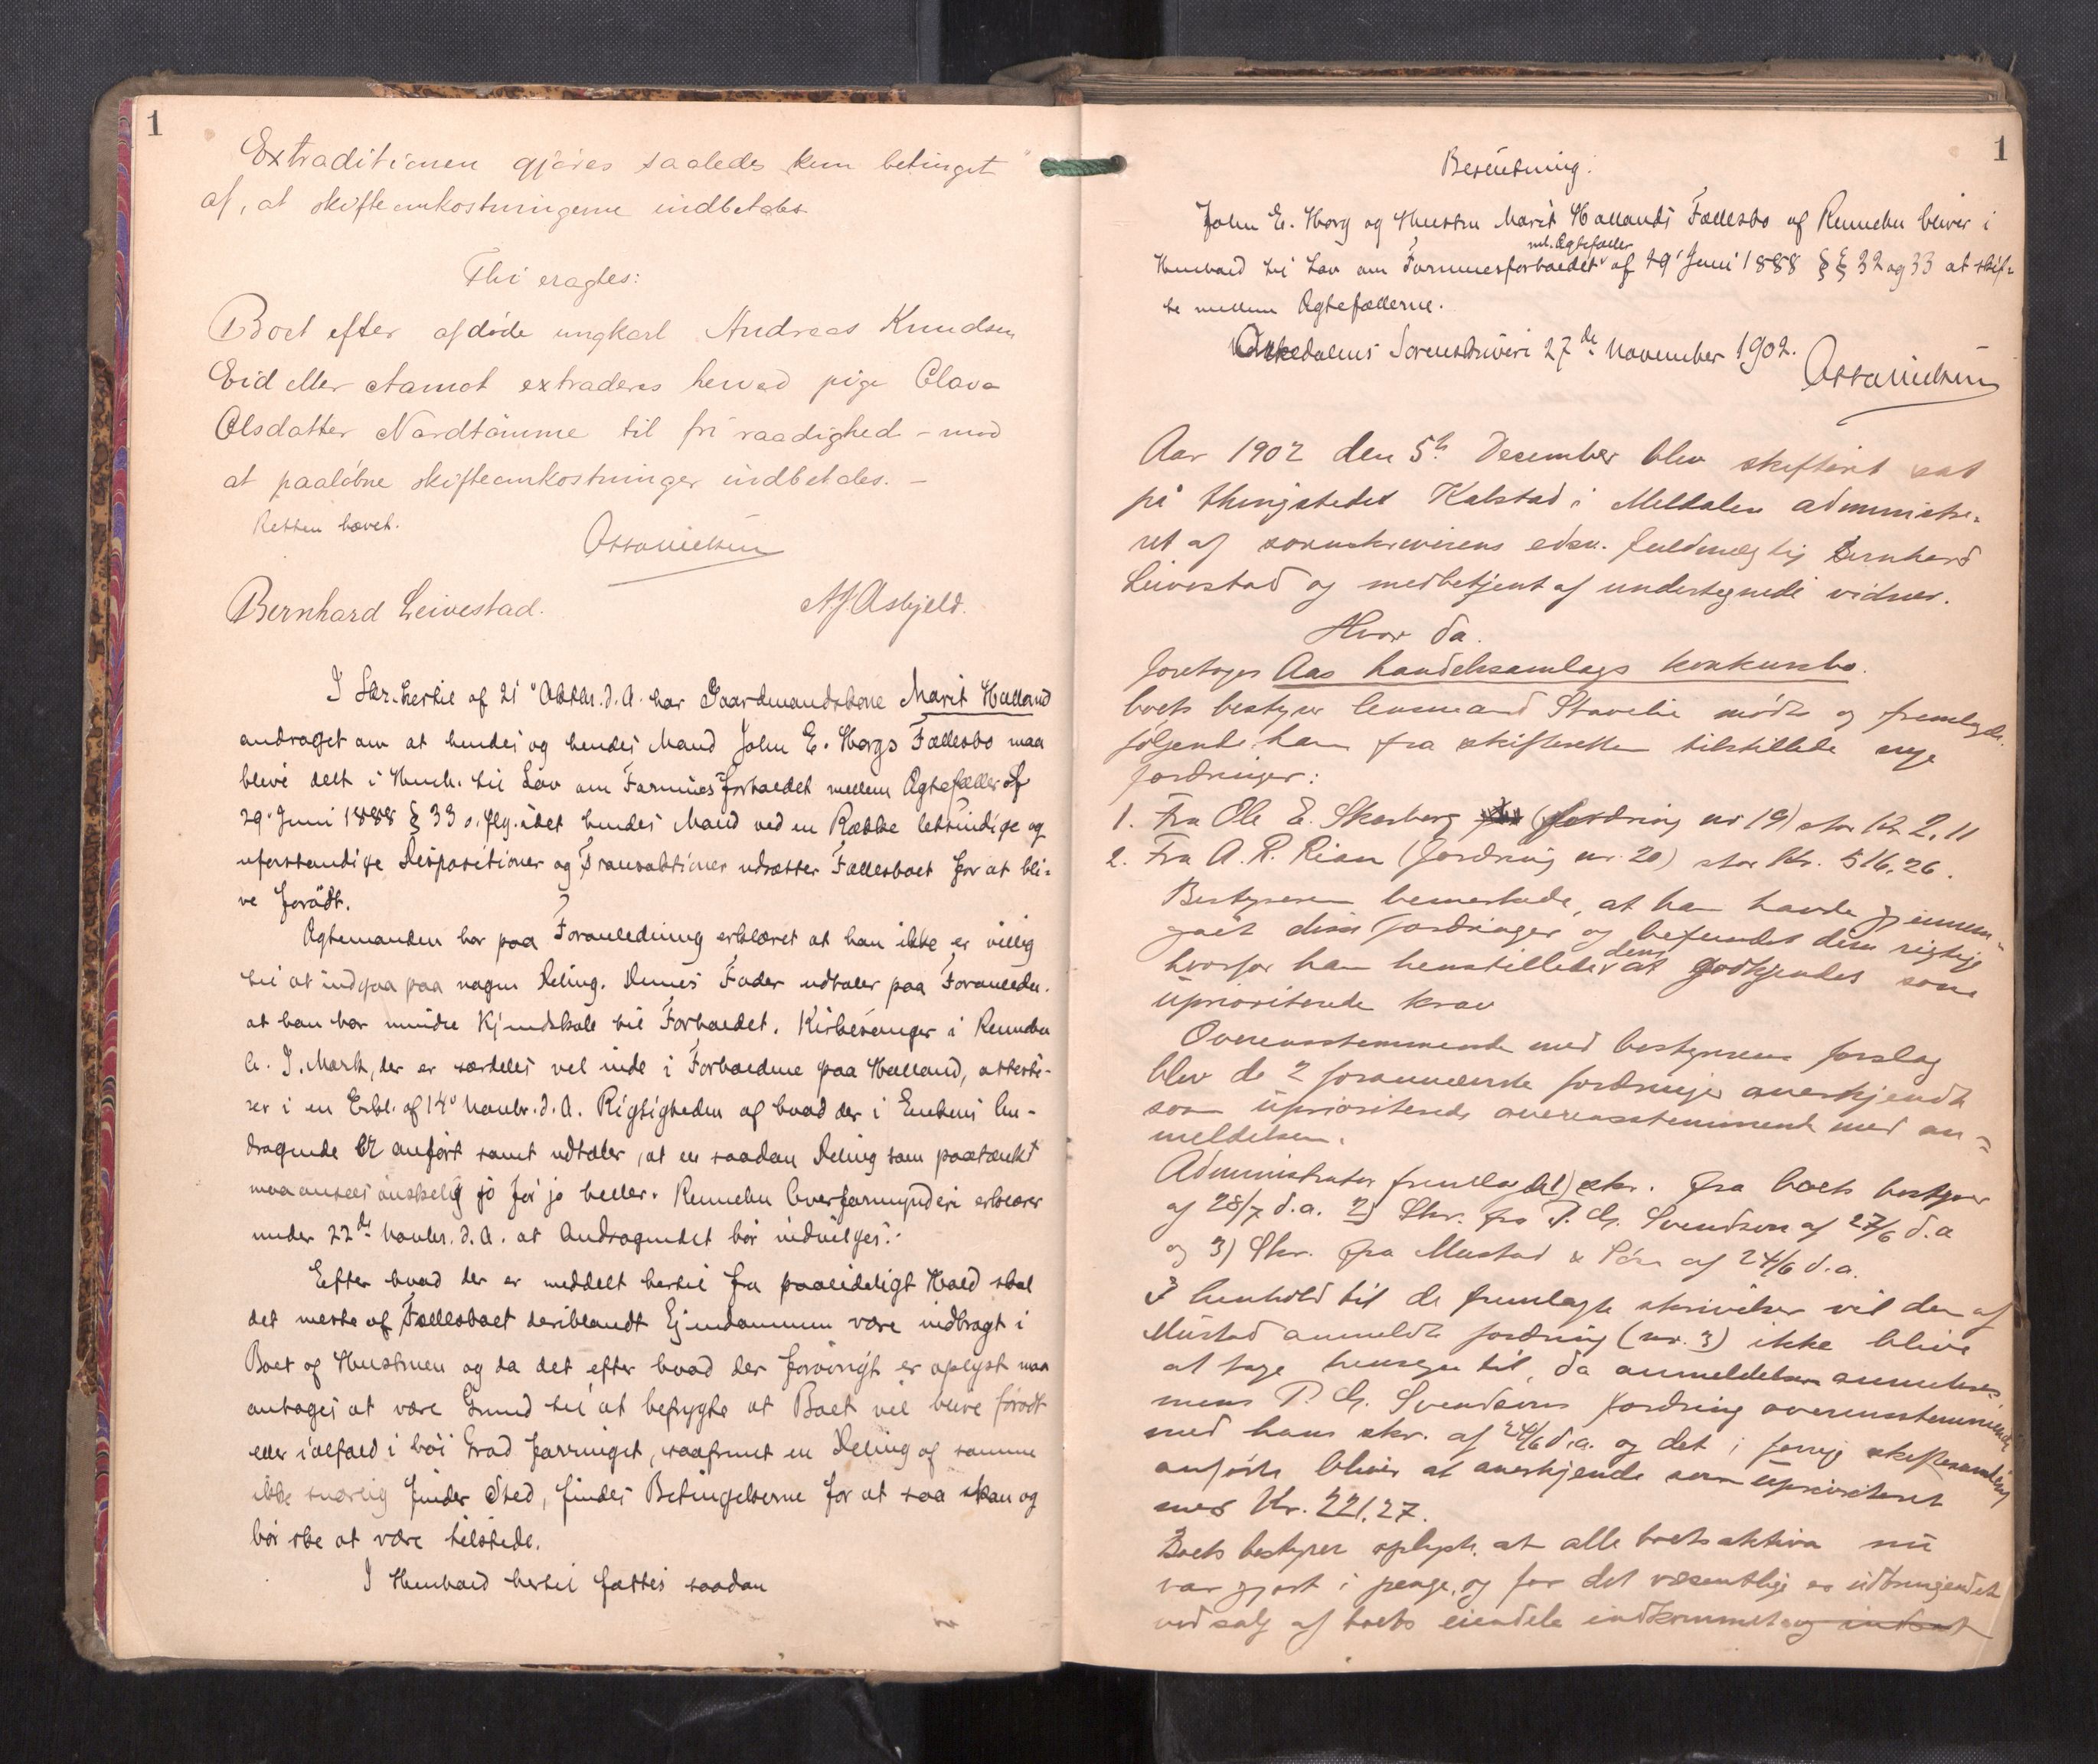 1
Extraditionen gjøres saaledes kun betinget
af, at skifteomkostningerne indbetales
Thi eragtes:
Boet efter afdøde ungkarl Andreas Knudsen
Eid eller Aamot extraderes herved pige Olava
Olsdatter Nordtømme til fri raadighed - mod
at paaløbne skifteomkostninger indbetales. -
Retten hævet.
Bernhard Leivestad.
I Skr. hertil af 21' Oktbr. d. A. har Gaardmandskone Marit Halland
andraget om at hendes og hendes Mand John E. Horgs Fællesbo maa
blive delt i Henh. til Lov om Formuesforholdet mellem Ægtefæller af
29' Juni 1888 § 33 o. flg. idet hendes Mand ved en Række letsindige og
uforstandige Dispositioner og Transaktioner udsætter Fællesboet for at bli-
ve forødt.
Ægtemanden har paa Foranledning erklæret at han ikke er villig
til at indgaa paa nogen Deling. Dennes Fader udtaler paa Foranledn.
at han har mindre Kjendskab til Forholdet. Kirkesanger i Rennebu
I. Mærk, der er særdeles vel inde i Forholdene paa Halland, atteste-
rer i en Erkl. af 14' Novbr. d. A. Rigtigheden af hvad der i Enkens An-
dragende er anført samt udtaler, at en saadan Deling som paatænkt
maa ansees ønskelig jo før jo heller. Rennebu Overformynderi erklærer
under 22de Novbr. d. A. at Andragendet bør indvilges.
Efter hvad der er meddelt hertil fra paalideligt Hold skal
det meste af Fællesboet deriblandt Ejendommen være indbragt i
Boet af Hustruen og da det efter hvad der forøvrigt er oplyst maa
antages at være Grund til at befrygte at Boet vil blive forødt
eller ialfald i høi Grad forringet, saafremt en Deling af samme
ikke snarlig finder Sted, findes Betingelserne for at saa skan og
bør ske at være tilstede.
I Henhold hertil fattes saadan
1
Beslutning:
John E. Horg og Hustru Marit Hallands Fællesbo af Rennebu bliver i
Henhold til Lov om Formuesforholdet ml. Ægtefæller af 29' Juni 1888 §§ 32 og 33 at skif-
te mellem Ægtefællerne.
Orkedalens Sorenskriveri 27de November 1902.
Aar 1902 den 5te December blev skifteret sat
på thingstedet Kalstad i Meldalen administre-
ret af sorenskriverens edsv. fuldmægtig Bernhard
Leivestad og medbetjent af undertegnede vidner.
Hvor da.
foretoges Aas handelssamlags konkursbo.
boets bestyrer lensmand Stavelie mødte og fremlagde
følgende, ham fra skifteretten tilstillede nye
fordringer:
1. Fra Ole E. Skarberg (fordring nr 19) stor kr. 2,11
2. Fra A. R. Rian (fordring nr. 20) stor Kr. 516,26.
Bestyreren bemerkede, at han havde gjennem-
gået disse fordringer og befundet dem rigtige
hvorfor han henstillede dem at godkjendes som
uprioriterede krav
Overensstemmende med bestyrerens forslag
blev de 2 forannævnte fordringer anerkjendt
som uprioriterede overensstemmende med an-
meldelsen.
Administrator fremlagde 1) skr. fra boets bestyrer
af 28/7 d.a. 2) Skr. fra P. G. Svendsen af 27/6 d.a
og 3) Skr. fra Mustad & Søn af 24/6 d.a.
I henhold til de fremlagte skrivelser vil den af
Mustad anmeldte fordring (nr. 3) ikke blive
at tage hensyn til, da anmeldelsen annuleres,
mens P. G. Svendsens fordring overensstemmende
med hans skr. af 24/6 d.a. og det i forrige skiftesamling
anførte bliver at anerkjende som uprioriteret
med Kr. 221.27.
Boets bestyrer oplyste, at alle boets aktiva nu
var gjort i penge, og for det væsentlige er udbringendet
ved salg af boets eiendele indkommet og